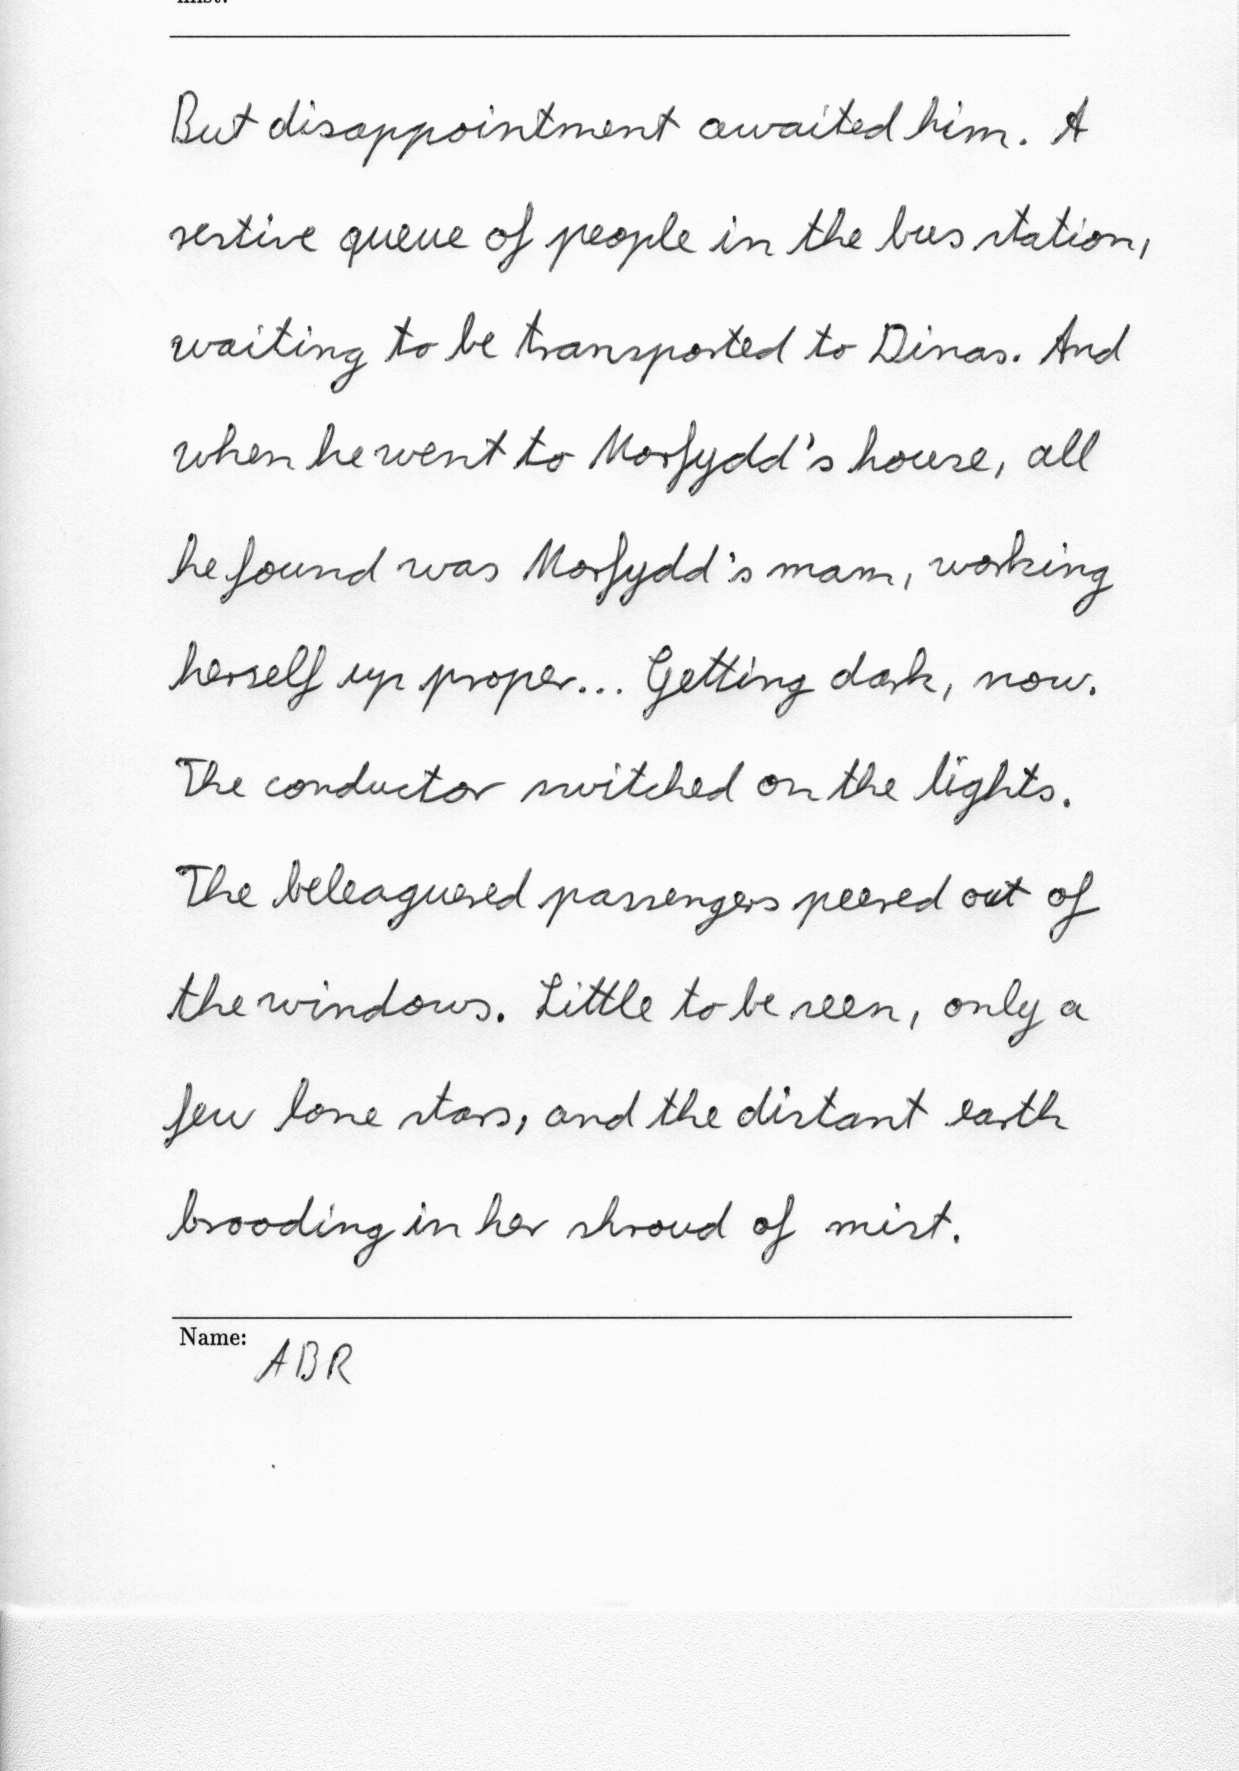 mist.
But disappointment awaited him. A
restive queue of people in the bus station,
waiting to be transported to Dinas. And
when he went to Morfydd's house, all
he found was Morfydd's mam, working
herself up proper... Getting dark, now.
The conductor switched on the lights.
The beleaguered passengers peered out of
the windows. Little to be seen, only a
few lone stars, and the distant earth
brooding in her shroud of mist.
Name:
ABR